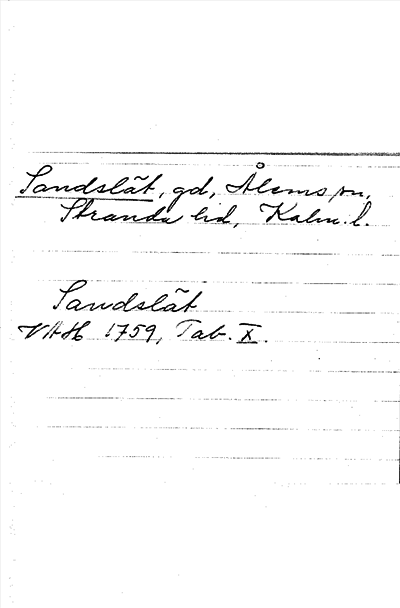 Sandslät, gd, Ålems sn,
Stranda hd, Kalm. l.
Sandslät
VAH 1759, Tab. X.